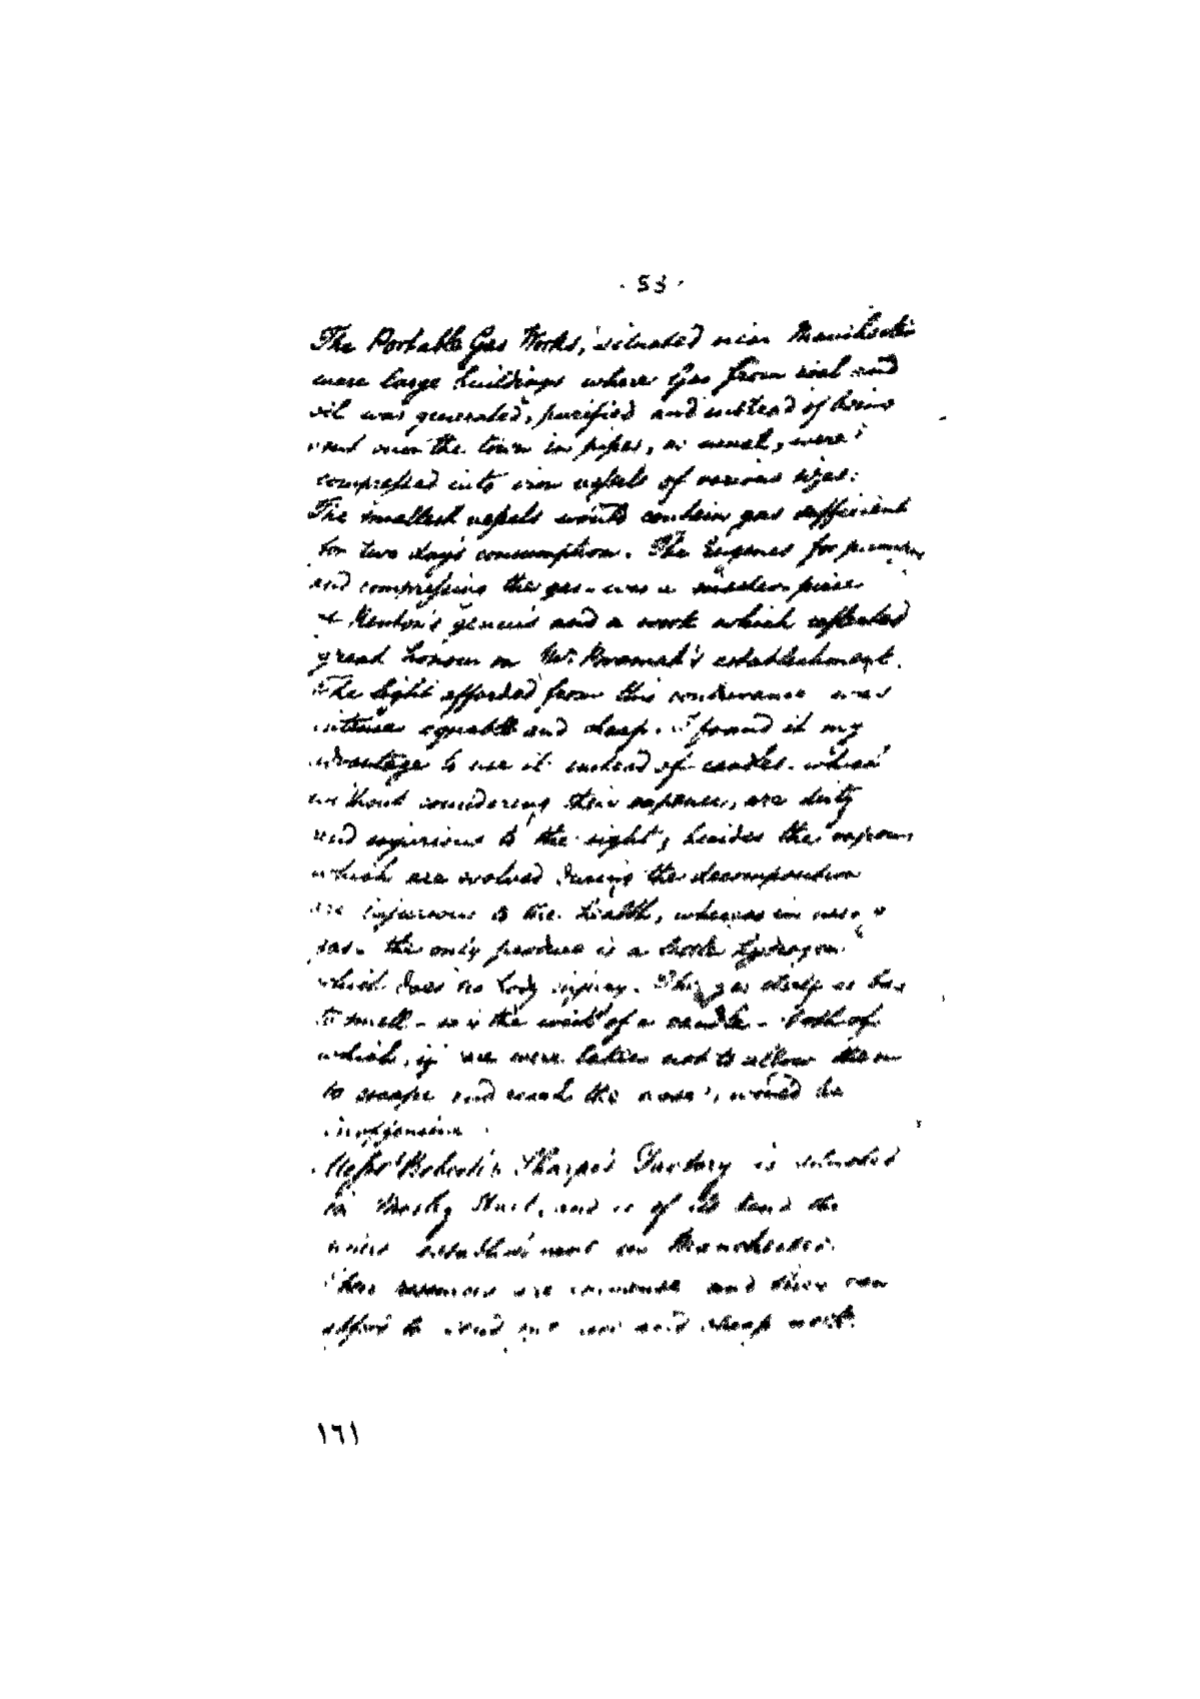 . 53 .
The Portable Gas Works, situated near Manchester
were large buildings where Gas from coal and
oil was generated, purified and instead of being
sent over the town in pipes, as usual, were
compressed into iron vessels of various sizes.
The smallest vessels would contain gas sufficient
for two day's consumption. The Engines for
and compressing the gas was a master piece
of genius and a work which reflected
great honour on Mr. establishment.
The light afforded from this contrivance was
intense equable and cheap. I found it my
advantage to use it instead of candles. which
without considering their expence, are dirty
and injurious to the sight, besides the vapours
which are evolved during the decomposition
are injurious to the health, whereas in
gas the only produce is a
which does no body injury. The gas itself
to smell - so is the wick of a candle - both of
which, if care were taken not to allow them
to escape and reach the nose, would be
inoffensive.
Sharpe's Factory is situated
in Street, and is of its kind the
establishment in Manchester.
are immense and they can
afford to and cheap work.
١٦١